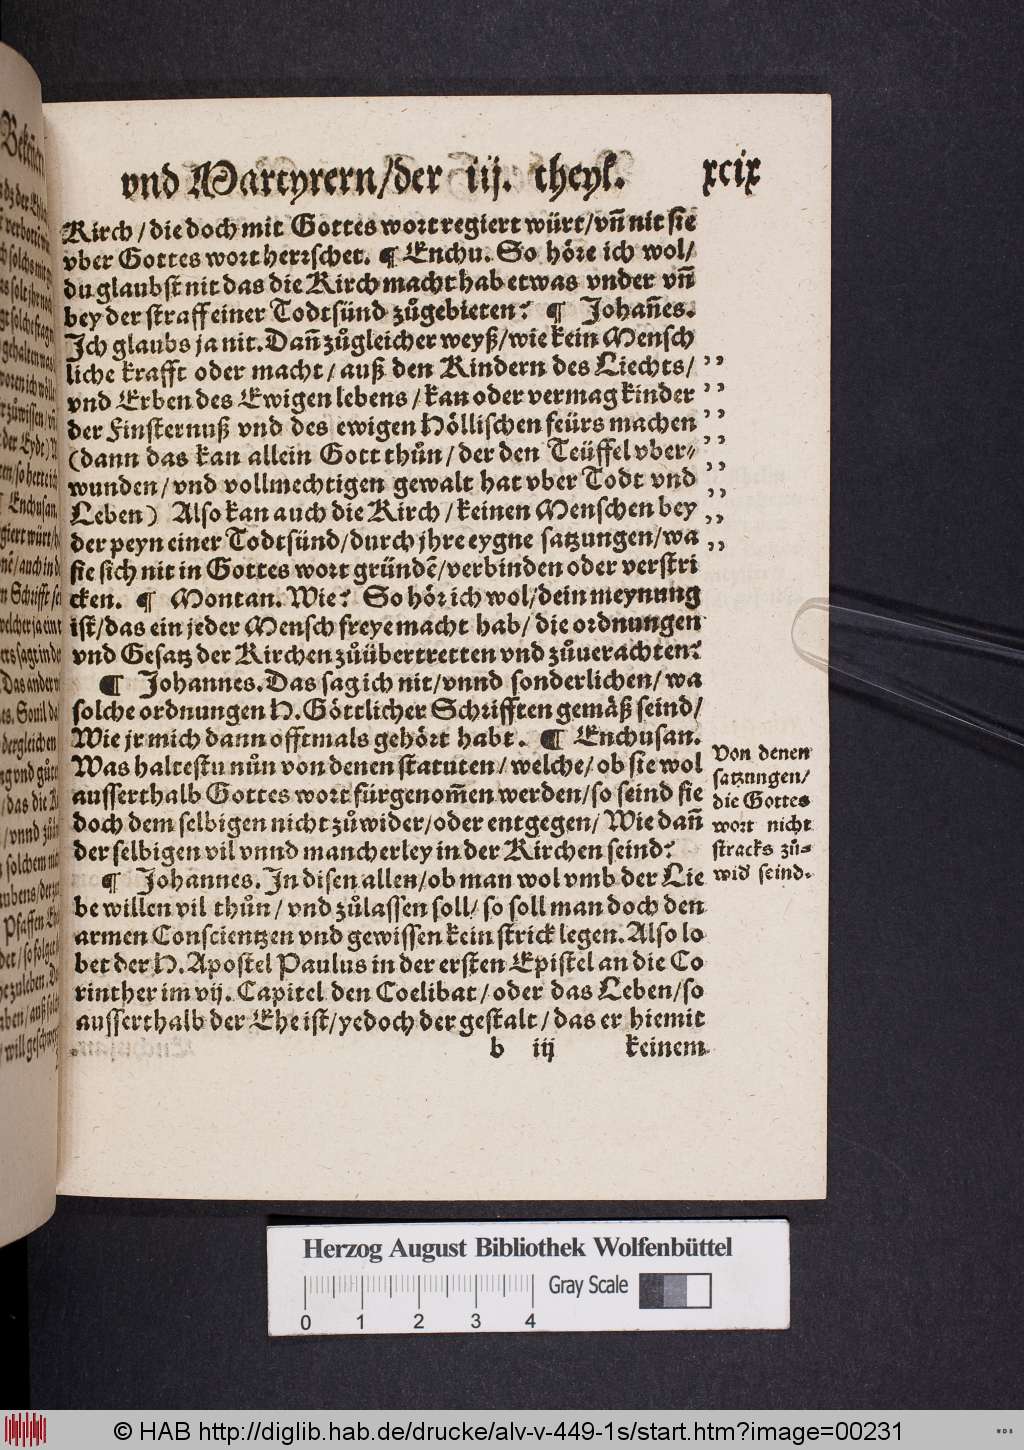 vnd Martyrern/der iij. theyl. xcix
Kirch/die doch mit Gottes wort regiert würt/vn̄ nit sie
vber Gottes wort herrschet. ¶ Enchu. So höre ich wol/
du glaubst nit das die Kirch macht hab etwas vnder vn̄
bey der straff einer Todtsünd zůgebieten? ¶ Johan̄es.
Ich glaubs ja nit. Dan̄ zůgleicher weyß/wie kein Mensch
liche krafft oder macht/auß den Kindern des Liechts/
vnd Erben des Ewigen lebens/kan oder vermag kinder
der Finsternuß vnd des ewigen Höllischen feürs machen
(dann das kan allein Gott thůn/der den Teüffel vber⸗
wunden/vnd vollmechtigen gewalt hat vber Todt vnd
Leben) Also kan auch die Kirch/keinen Menschen bey
der peyn einer Todtsünd/durch jhre eygne satzungen/wa
sie sich nit in Gottes wort gründē/verbinden oder verstri
cken. ¶ Montan. Wie? So hör ich wol/dein meynung
ist/das ein jeder Mensch freye macht hab/die ordnungen
vnd Gesatz der Kirchen zůübertretten vnd zůuerachten?
¶ Johannes. Das sag ich nit/vnnd sonderlichen/wa
solche ordnungen H. Göttlicher Schrifften gemäß seind/
Wie jr mich dann offtmals gehört habt. ¶ Enchusan.
Was haltestu nůn von denen statuten/welche/ob sie wol
ausserthalb Gottes wort fürgenom̄en werden/so seind sie
doch dem selbigen nicht zůwider/oder entgegen/Wie dan̄
der selbigen vil vnnd mancherley in der Kirchen seind?
¶ Johannes. In disen allen/ob man wol vmb der Lie
be willen vil thůn/vnd zůlassen soll/so soll man doch den
armen Conscientzen vnd gewissen kein strick legen. Also lo
bet der H. Apostel Paulus in der ersten Epistel an die Co
rinther im vij. Capitel den Coelibat/oder das Leben/so
ausserthalb der Ehe ist/yedoch der gestalt/das er hiemit
b iij keinem
Von denen
satzungen/
die Gottes
wort nicht
stracks zů⸗
wid seind.
Herzog August Bibliothek Wolfenbüttel
Gray Scale
0 1 2 3 4
© HAB http://diglib.hab.de/drucke/alv-v-449-1s/start.htm?image=00231